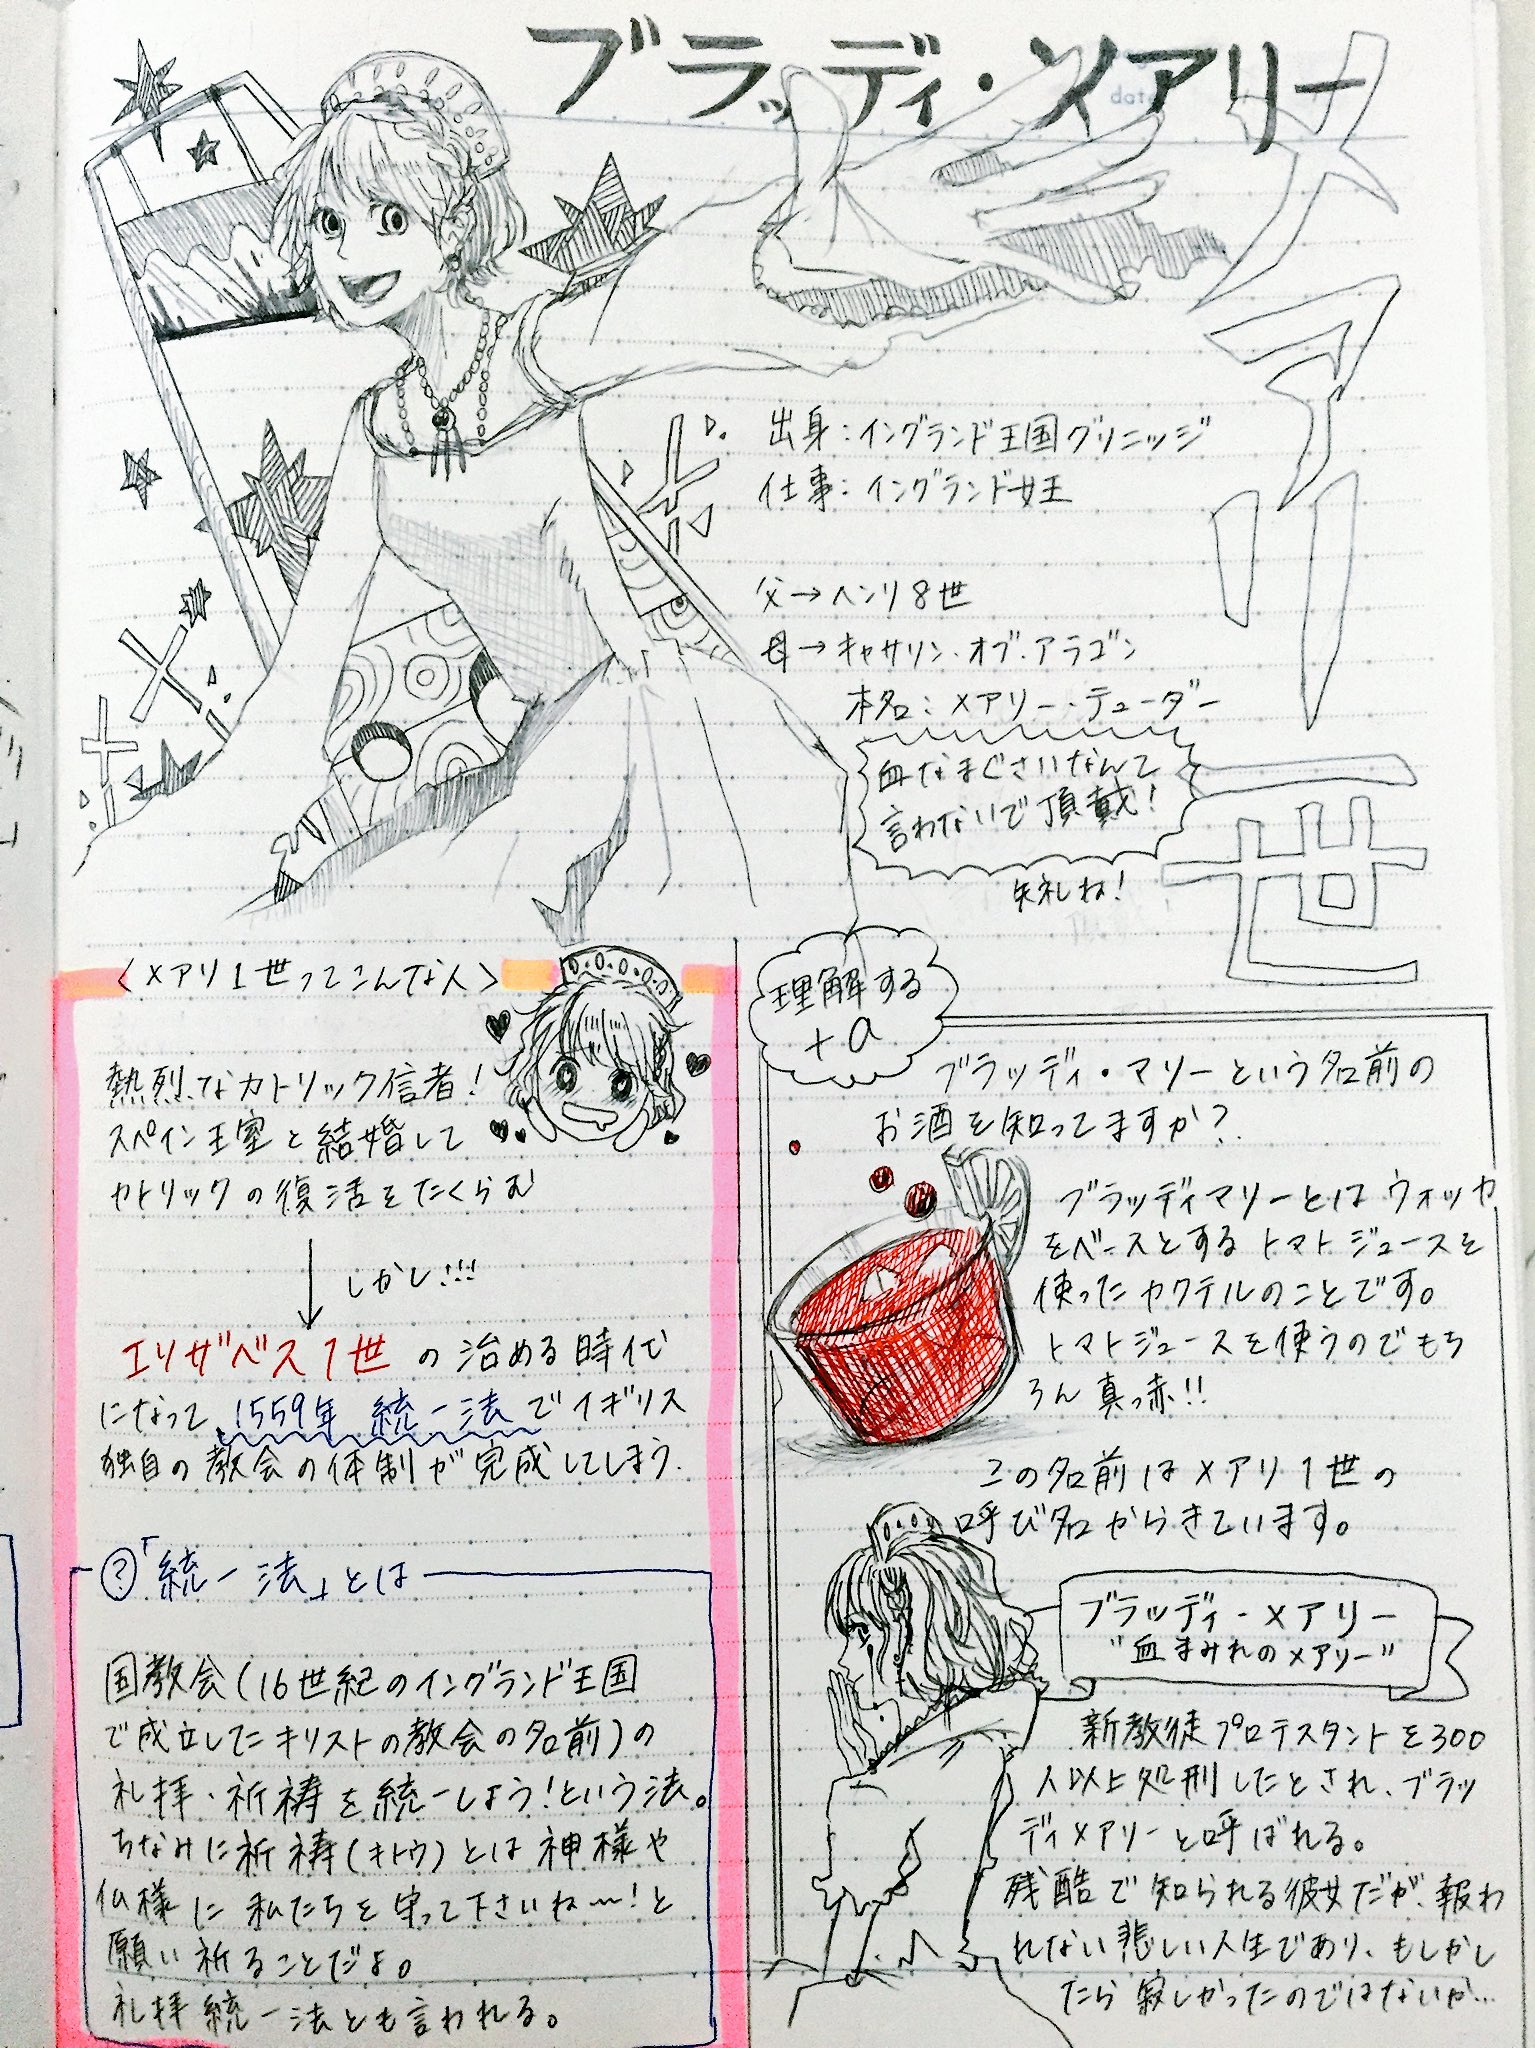 ブラッディ・メアリー
date
メアリ1世
出身:イングランド王国グリニッジ
仕事:イングランド女王
父→ヘンリ8世
母→キャサリン・オブ・アラゴン
本名:メアリー・テューダー
血なまぐさいなんて
言わないで頂戴!
失礼ね!
〈メアリ1世ってこんな人〉
熱烈なカトリック信者!
スペイン王室と結婚して
カトリックの復活をたくらむ
しかし!!!
エリザベス1世の治める時代
になって1559年 統一法でイギリス
独自の教会の体制が完成してしまう.
?「統一法」とは
国教会(16世紀のイングランド王国
で成立したキリストの教会の名前)の
礼拝・祈祷を統一しよう!という法。
ちなみに祈祷(キトウ)とは神様や
仏様に私たちを守って下さいね〜!と
願い祈ることだよ。
礼拝統一法とも言われる。
理解する
+α
ブラッディ・マリーという名前の
お酒を知ってますか?
ブラッディマリーとはウォッカ
をベースとするトマトジュースを
使ったカクテルのことです。
トマトジュースを使うのでもち
ろん真っ赤!!
この名前はメアリ1世の
呼び名からきています。
ブラッディ・メアリー
"血まみれのメアリー"
新教徒プロテスタントを300
人以上処刑したとされ、ブラッ
ディメアリーと呼ばれる。
残酷で知られる彼女だが、報わ
れない悲しい人生であり、もしかし
たら寂しかったのではないか…